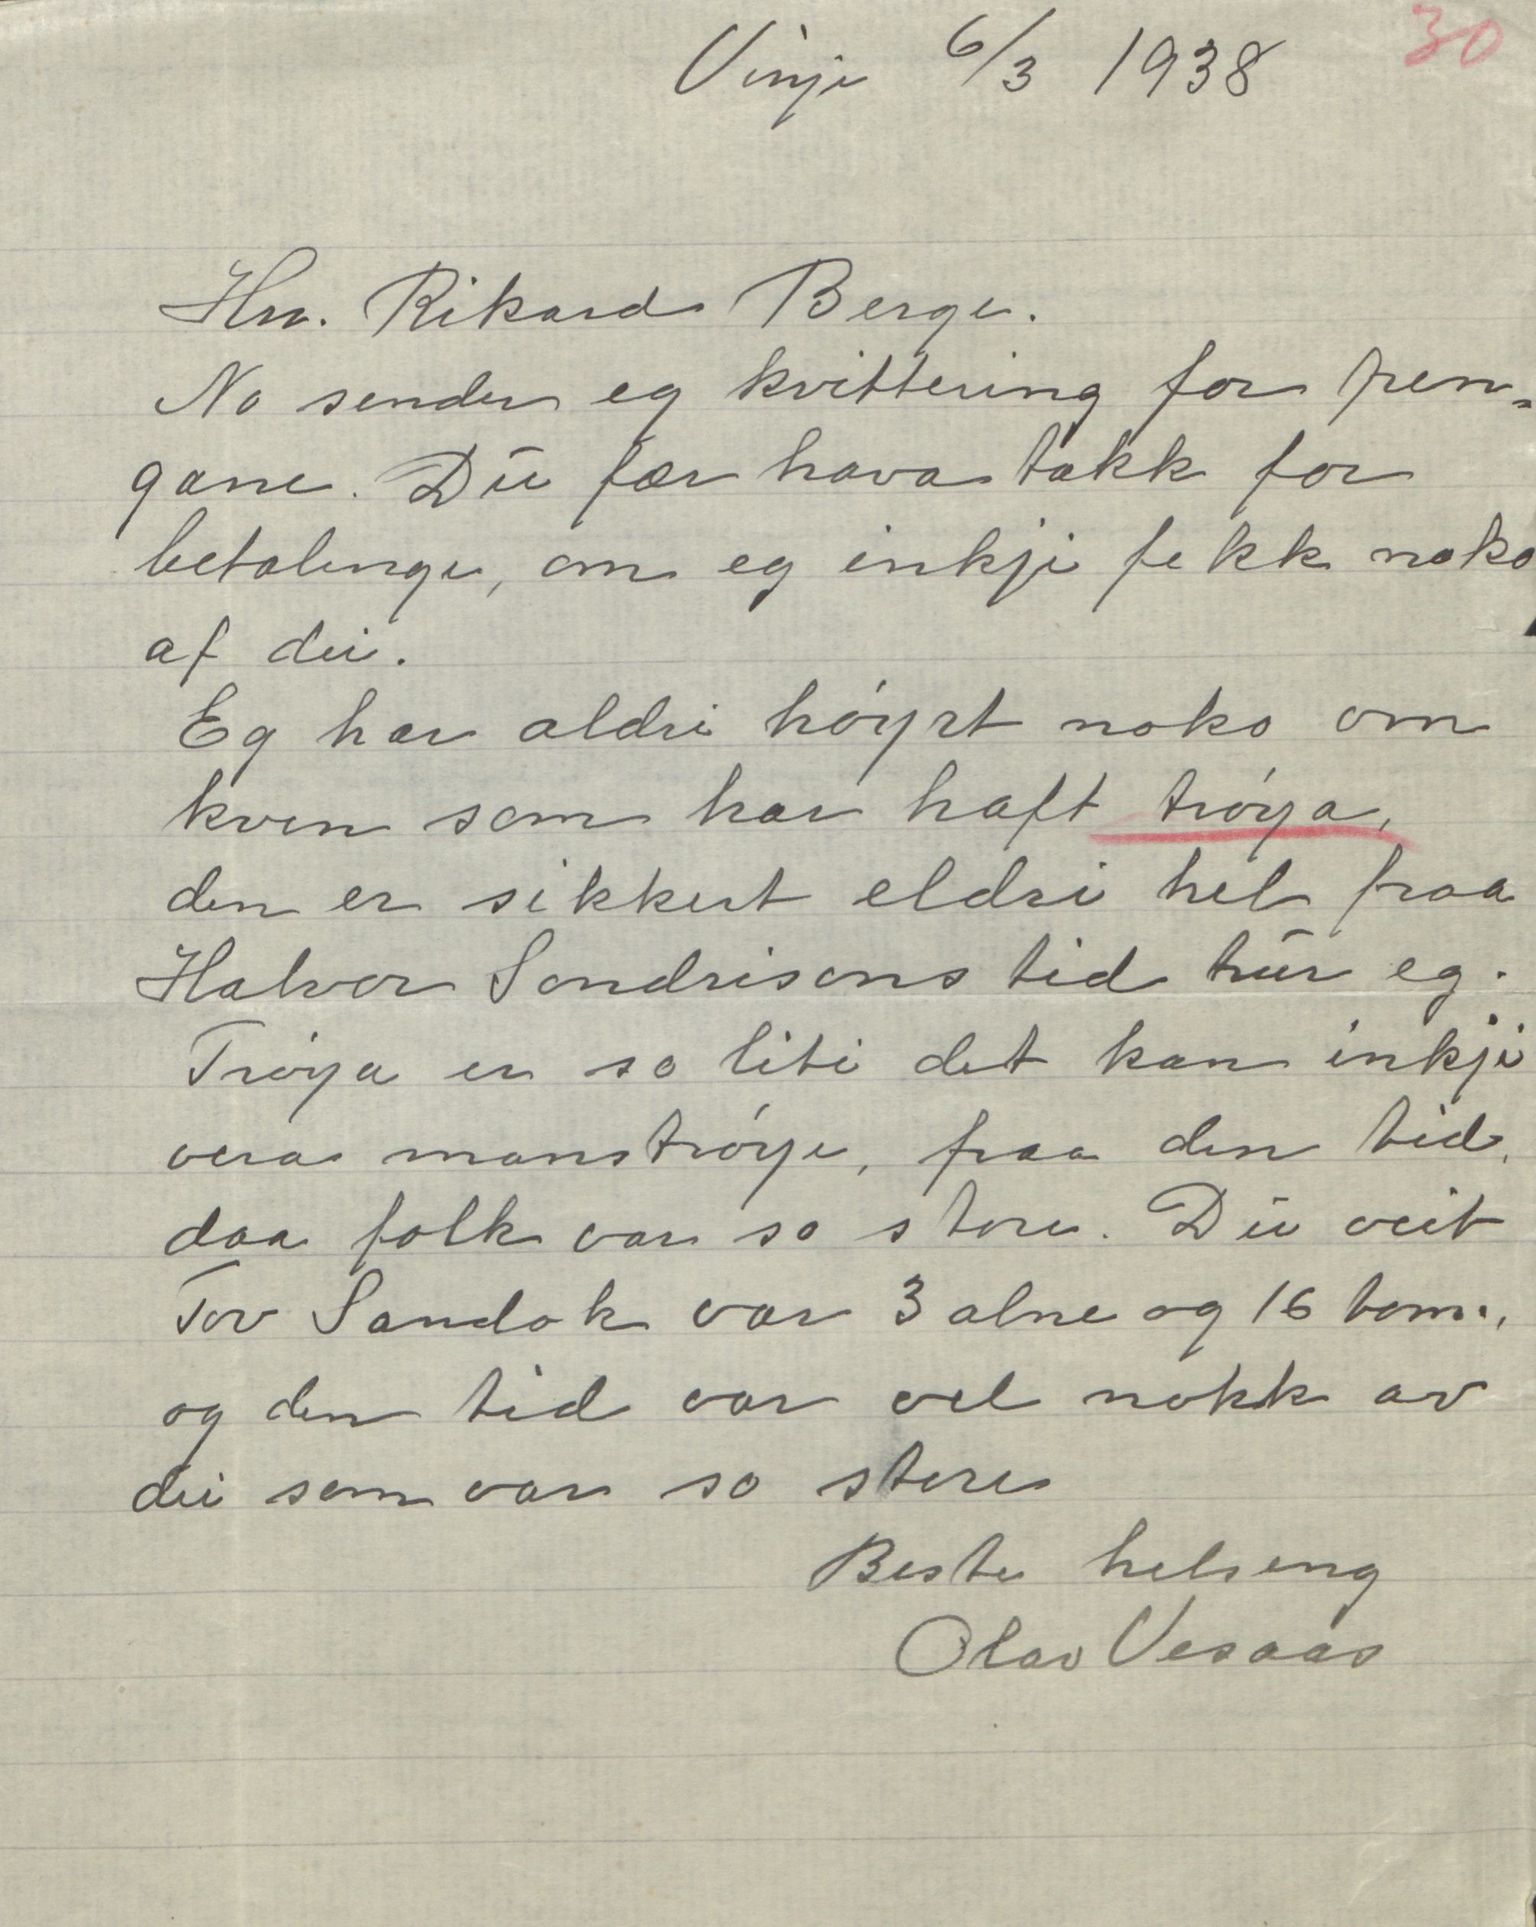 30
Vinje 6/3 1938
Hr. Rikard Berge.
No sender eg kvittering for pen-
gane. Du fær hava takk for
betalinge, om eg inkji fekk noko
af dei.
Eg har aldri höyrt noko om
kven som har haft tröya,
den er sikkert eldri hel fraa
Halvor Sondrisons tid trur eg.
Tröya er so liti det kan inkji
vera manströye, fraa den tid,
daa folk var so store. Du veit
Tov Sandok var 3 alne og 16 tom.,
og den tid var vel nokk av
dei som var so store
Beste helseng
Olav Vesaas